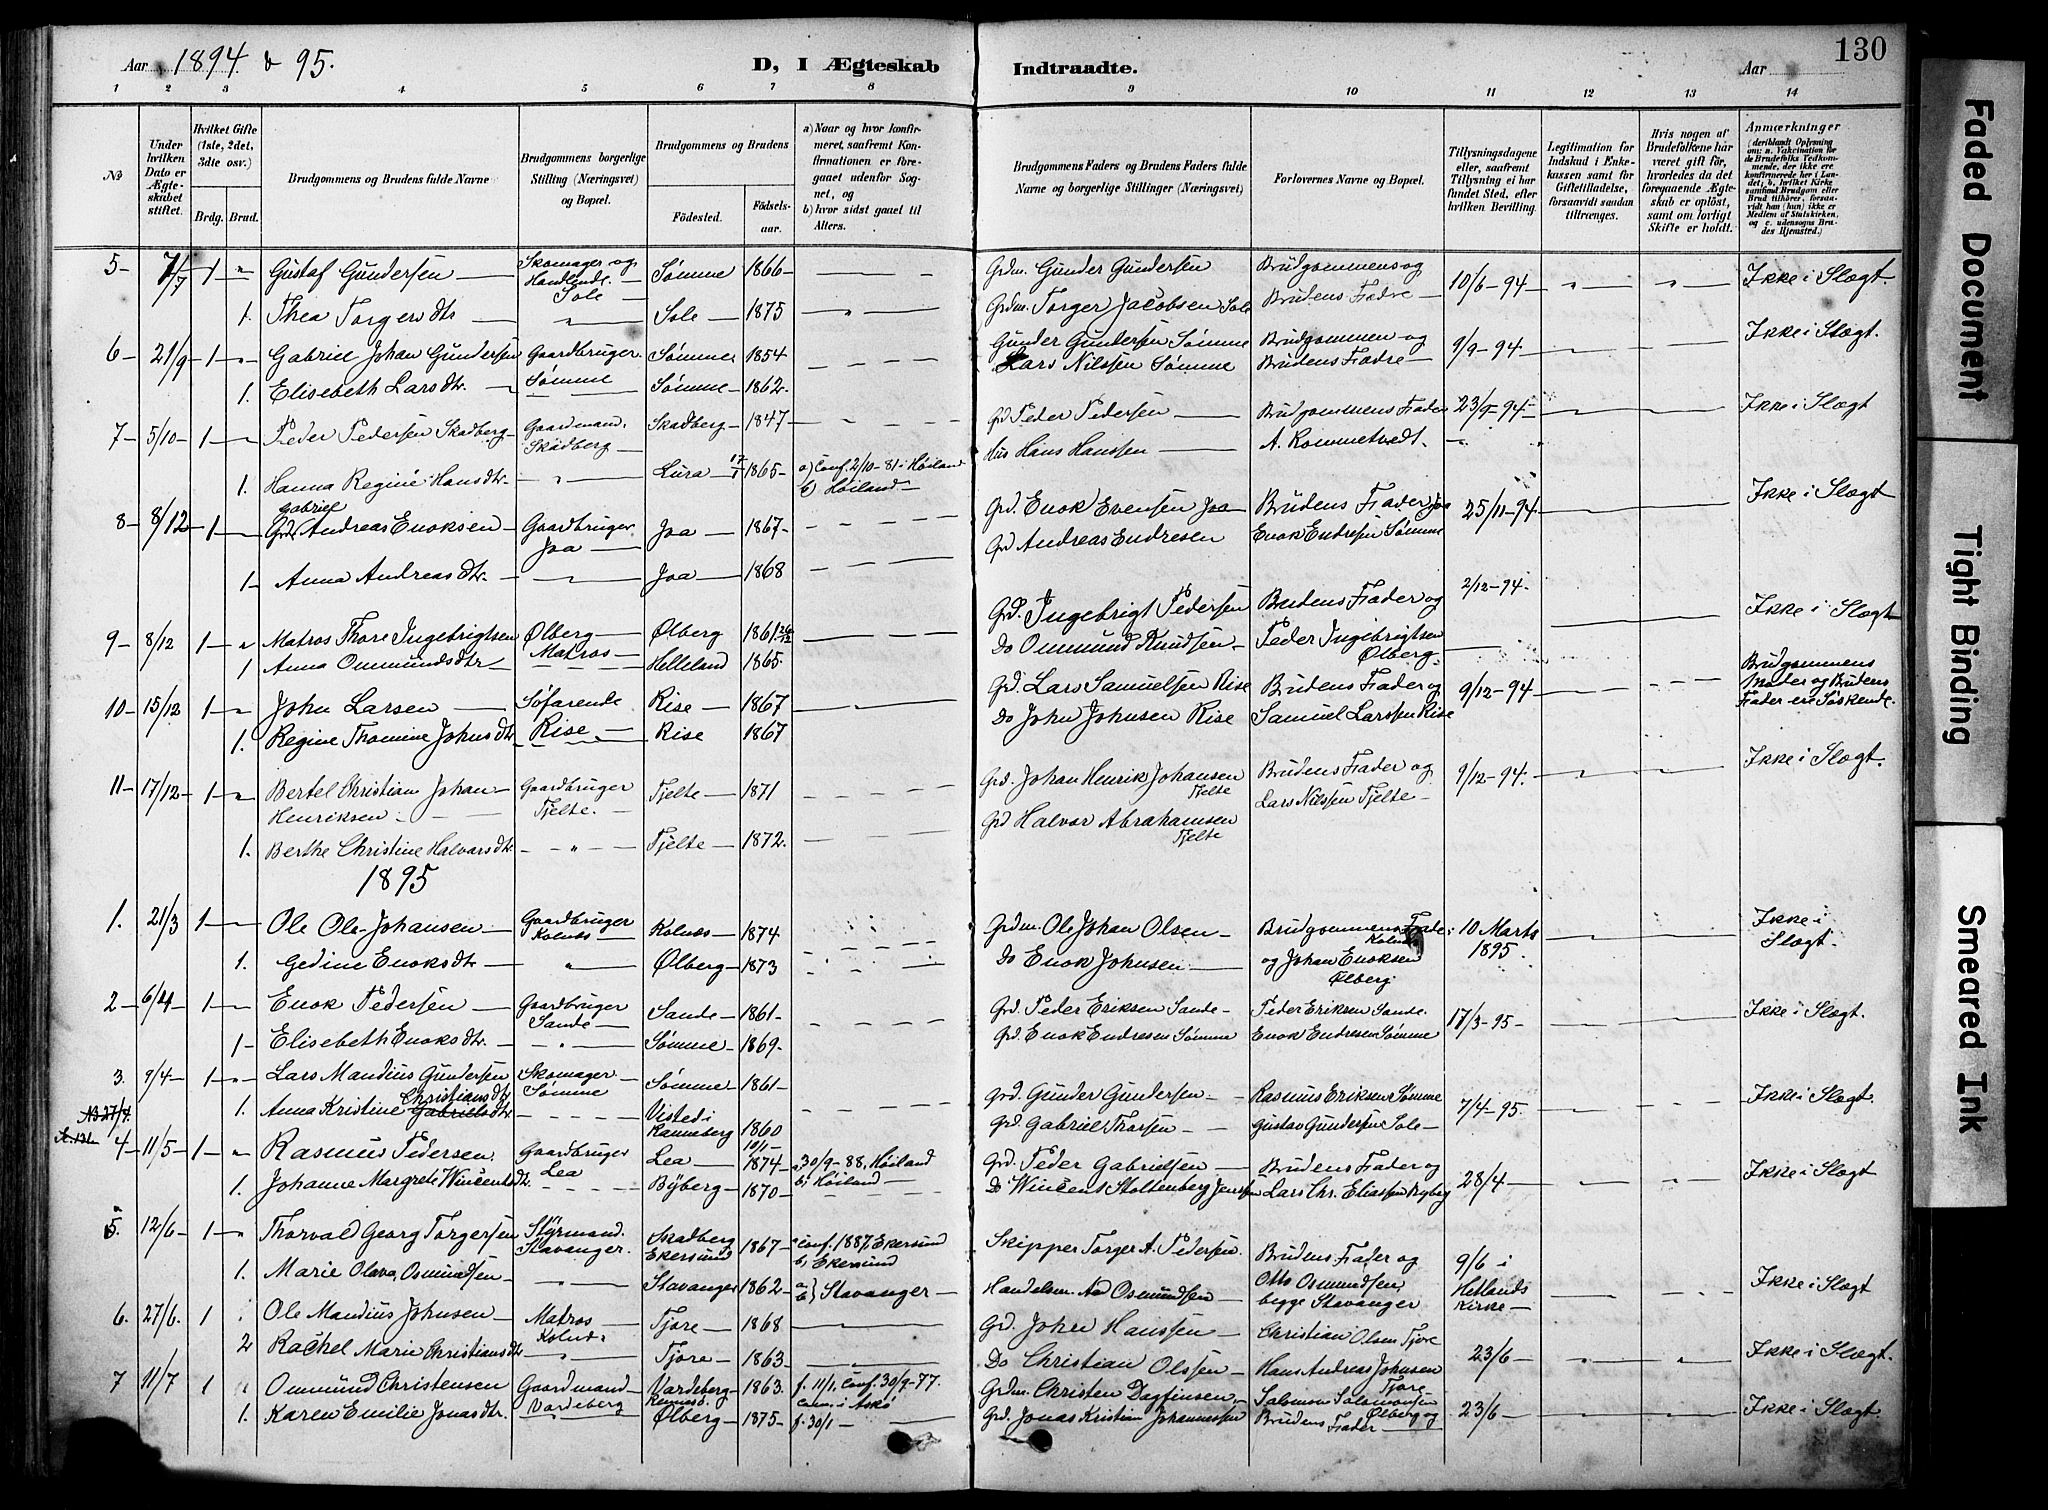 Aar 1894 & 95. D, I Ægteskab Indtraadte. Aar 130
1 2 3 4 5 6 7 8 9 10 11 12 13 14
No
Under hvilken Dato er Ægteskabet stiftet.
Hvilket Gifte (1ste, 2det, 3die osv.)
Brdg. Brud.
Brudgommens og Brudens fulde Navne
Brudgommens borgerlige Stilling (Næringsvei) og Bopæl.
Brudgommens og Brudens
Födested. Födselsaar.
a) Naar og hvor konfirmeret, saafremt Konfirmationen er foregaaet udenfor Sognet, og
b) hvor sidst gaaet til Alters.
Brudgommens Faders og Brudens Faders fulde Navne og borgerlige Stillinger (Næringsvei)
Forlovernes Navne og Bopæl.
Tillysningsdagene eller, saafremt Tillysning ei har fundet Sted, efter hvilken Bevilling.
Legitimation for Indskud i Enkekassen samt for Giftetilladelse, forsaavidt saadan tiltrænges.
Hvis nogen af Brudefolkene har været gift för, hvorledes da det foregaaende Ægteskab er oplöst, samt om lovligt Skifte er holdt.
Anmærkninger
5 - 7/7 - 1 - " Gustaf Gundersen — Skomager og Handlende. Sole — Sømme 1866 — Grdm. Gunder Gundersen Brudgommens og 10/6-94 Ikke i Slægt.
1. Thea Torgersdtr — " — Sole — 1875 — Grdm. Torger Jacobsen Sole Brudens Fædre —
6 - 21/9 - 1 - " Gabriel Johan Gundersen Gaardbruger Sømme 1854 Gunder Gundersen Sømme Brudgommen og 9/9-94 Ikke i Slægt.
1. Elisebeth Larsdtr. — Sømme — Sømme — 1862. Lars Nilssen Sømme Brudens Fædre —
7 - 5/10 - 1 - Peder Pedersen Skadberg Gaardmand. Skadberg — Skadberg — 1847 Grd Peder Pedersen — Brudgommens Fader 23/9-94 Ikke i Slægt
1. Hanna Regine Hansdtr. — " — Lura 17/1 1865 — a) Conf. 2/10-81 i Høiland b) Høiland — Hus Hans Hanssen — A. Rommetvedt.
Gabriel
8 - 8/12 - 1 - Andreas Enoksen — Gaardbruger Joa — Joa — 1867 — Grd. Enok Evensen Joa Brudens Fader og 25/11-94. Ikke i Slægt
1 - Anna Andreasdtr. — Joa — 1868 Grd Andreas Endresen Enok Endresen Sømme
9 - 8/12 1 - " Matros Thore Ingebrigtsen Ølberg — Ølberg 1861 26/12 Grd. Ingebrigt Pedersen Brudens Fader og 2/12-94. Ikke i Slægt
1 Anna Ommundsdtr — Matros — Helleland 1865. Do Ommund Knudsen — Peder Ingebrigtsen Ølberg.
10 - 15/12 1 - " John Larsen — Søfarende Rise — 1867 Grd. Lars Samuelsen Rise Brudens Fader og 9/12-94 Brudgommens Moder og Brudens Fader ere Søskende.
1. Regine Thomine Johnsdtr. Rise — Rise 1867 Do John Johnsen Rise Samuel Larssen Rise
11 - 17/12 - 1 - " Bertel Christian Johan Henriksen — Gaardbruger Tjelte. — Tjelte — 1871 Grd. Johan Henrik Johansen Tjelte Brudens Fader og Lars Nilssen Tjelte — 9/12-94. Ikke i Slægt.
1. Berthe Christine Halvarsdtr. — " — Tjelte — 1872. — Grd Halvor Abrahamsen Tjelte
1895
1. 21/3 1 — Ole Ole-Johansen — Gaardbruger Kolnæs — Kolnæs — 1874 Grdm. Ole Johan Olsen — Brudgommens Fader Kolnæs 10 Marts 1895. Ikke i Slægt.
1. Gedine Enoksdtr — " — Ølberg — 1873 Do Enok Johnsen — og Johan Enoksen Ølberg
2 - 6/4 - 1 — Enok Pedersen — Gaardbruger Sande — Sande — 1861 — Grd. Peder Eriksen Sande — Peder Eriksen Sande. 17/3-95 — Ikke i Slægt.
1 - Elisebeth Enoksdtr. — " — Sømme — 1869. Grd. Enok Endresen Sømme Enok Endresen Sømme
3. 9/4 — 1 - " Lars Mandius Gundersen Skomager Sømme — Sømme 1861 — Grd. Gunder Gundersen — Rasmus Eriksen Sømme 7/4-95. Ikke i Slægt.
NB 27/4. 1. Anna Kristine Gabrielsdtr Christiansdtr — Visted i Ranneberg 1860 Grd. Gabriel Thorsen — Gustav Gundersen Sole —
4 - 11/5 - 1 - " Rasmus Pedersen. Gaardbruger Lea — Lea — 10/1 1874 — a, 30/9-88, Høiland b, Høiland — Grd. Peder Gabrielsen — Brudens Fader og 28/4 — Ikke i Slægt
1. Johanne Margrete Wincentsdtr. — Byberg — 1870 — Do Wincens Stoltenberg Jenssen Lars Chr. Eliassen Byberg
5. 12/6 - 1 - " Thorvald Georg Torgersen Styrmand. Stavanger. Skadberg Ekersund 1867 — a Conf. 1887, Ekersund b, Ekersund Skipper Torger A. Pedersen. Brudens Fader og 9/6 i Hetlands Kirke —
1. Marie Olava Osmundsen — Stavanger 1862 — a) b) Stavanger — Handelsm. Aad Osmundsen — Otto Osmundsen, begge Stavanger Ikke i Slægt
6. 27/6. 1 Ole Mandius Johnsen — Matros — Kolnæs Tjore — 1868 Grd. John Hanssen — Christian Olsen Tjore 23/6 — Ikke i Slægt.
2 Rachel Marie Christiansdtr — " — Tjore — 1863 — Do Christian Olssen — Hans Andreas Johnsen Tjore
7 11/7 1 Ommund Christensen Gaardmand — Vardeberg Vardeberg Rennesø. 1863. f. 11/1. Conf. 30/9-77. Grdm. Christen Dagfinsen — Salomon Salomonsen Ølberg og 23/6 — Ikke i Slægt.
1. Karen Emilie Jonasdtr. Ølberg — 1875 — f. 30/1 — Grd. Jonas Kristian Johannessen Brudens Fader —
Faded Document
Tight Binding
Smeared Ink